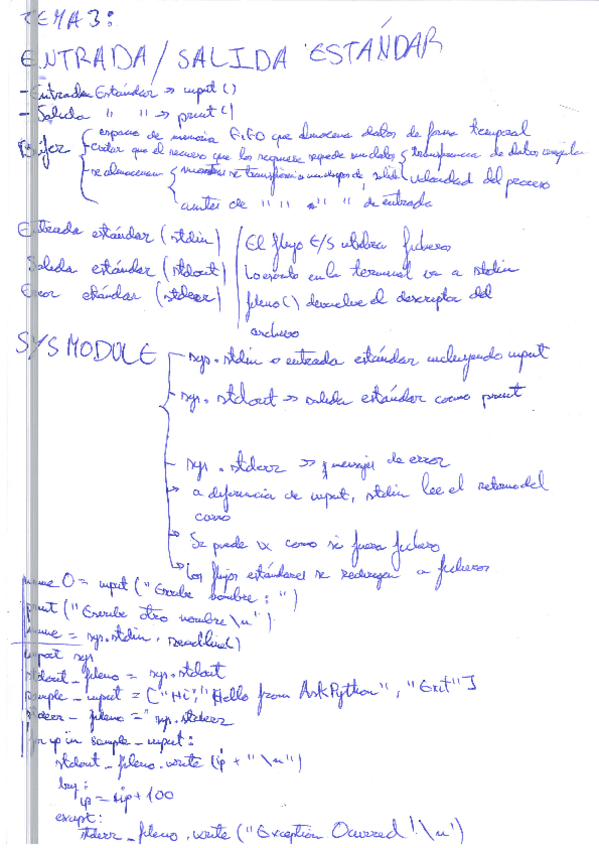 TEMA 3:
ENTRADA/SALIDA ESTÁNDAR
- Entrada Estándar => input()
- Salida " " => print()
Búfer espacio de memoria FIFO que almacena datos de forma temporal
que el recurso que los requiere se quede sin datos transferencia de datos irregular
se almacenan mientras se transfieren salida velocidad del proceso
antes de " " " " de entrada
Entrada estándar (stdin) El flujo E/S utiliza ficheros
Salida estándar (stdout) Lo escrito en la terminal va a stdin
Error estándar (stderr) fileno() devuelve el descriptor del
archivo
SYS MODULE sys.stdin => entrada estándar incluyendo input
sys.stdout => salida estándar como print
sys.stderr => mensajes de error
a diferencia de input, stdin lee el retorno del
carro
Se puede ver como si fuera fichero
Los flujos estándares se redirigen a ficheros
name 0 = input("Escribe nombre: ")
print("Escribe otro nombre\n")
name = sys.stdin.readline()
import sys
stdout_fileno = sys.stdout
sample_input = ["Hi", "Hello from AskPython", "Exit"]
stderr_fileno = sys.stderr
for ip in sample_input:
stdout_fileno.write(ip + "\n")
try:
ip = ip + 100
except:
stderr_fileno.write("Exception Ocurred!\n")